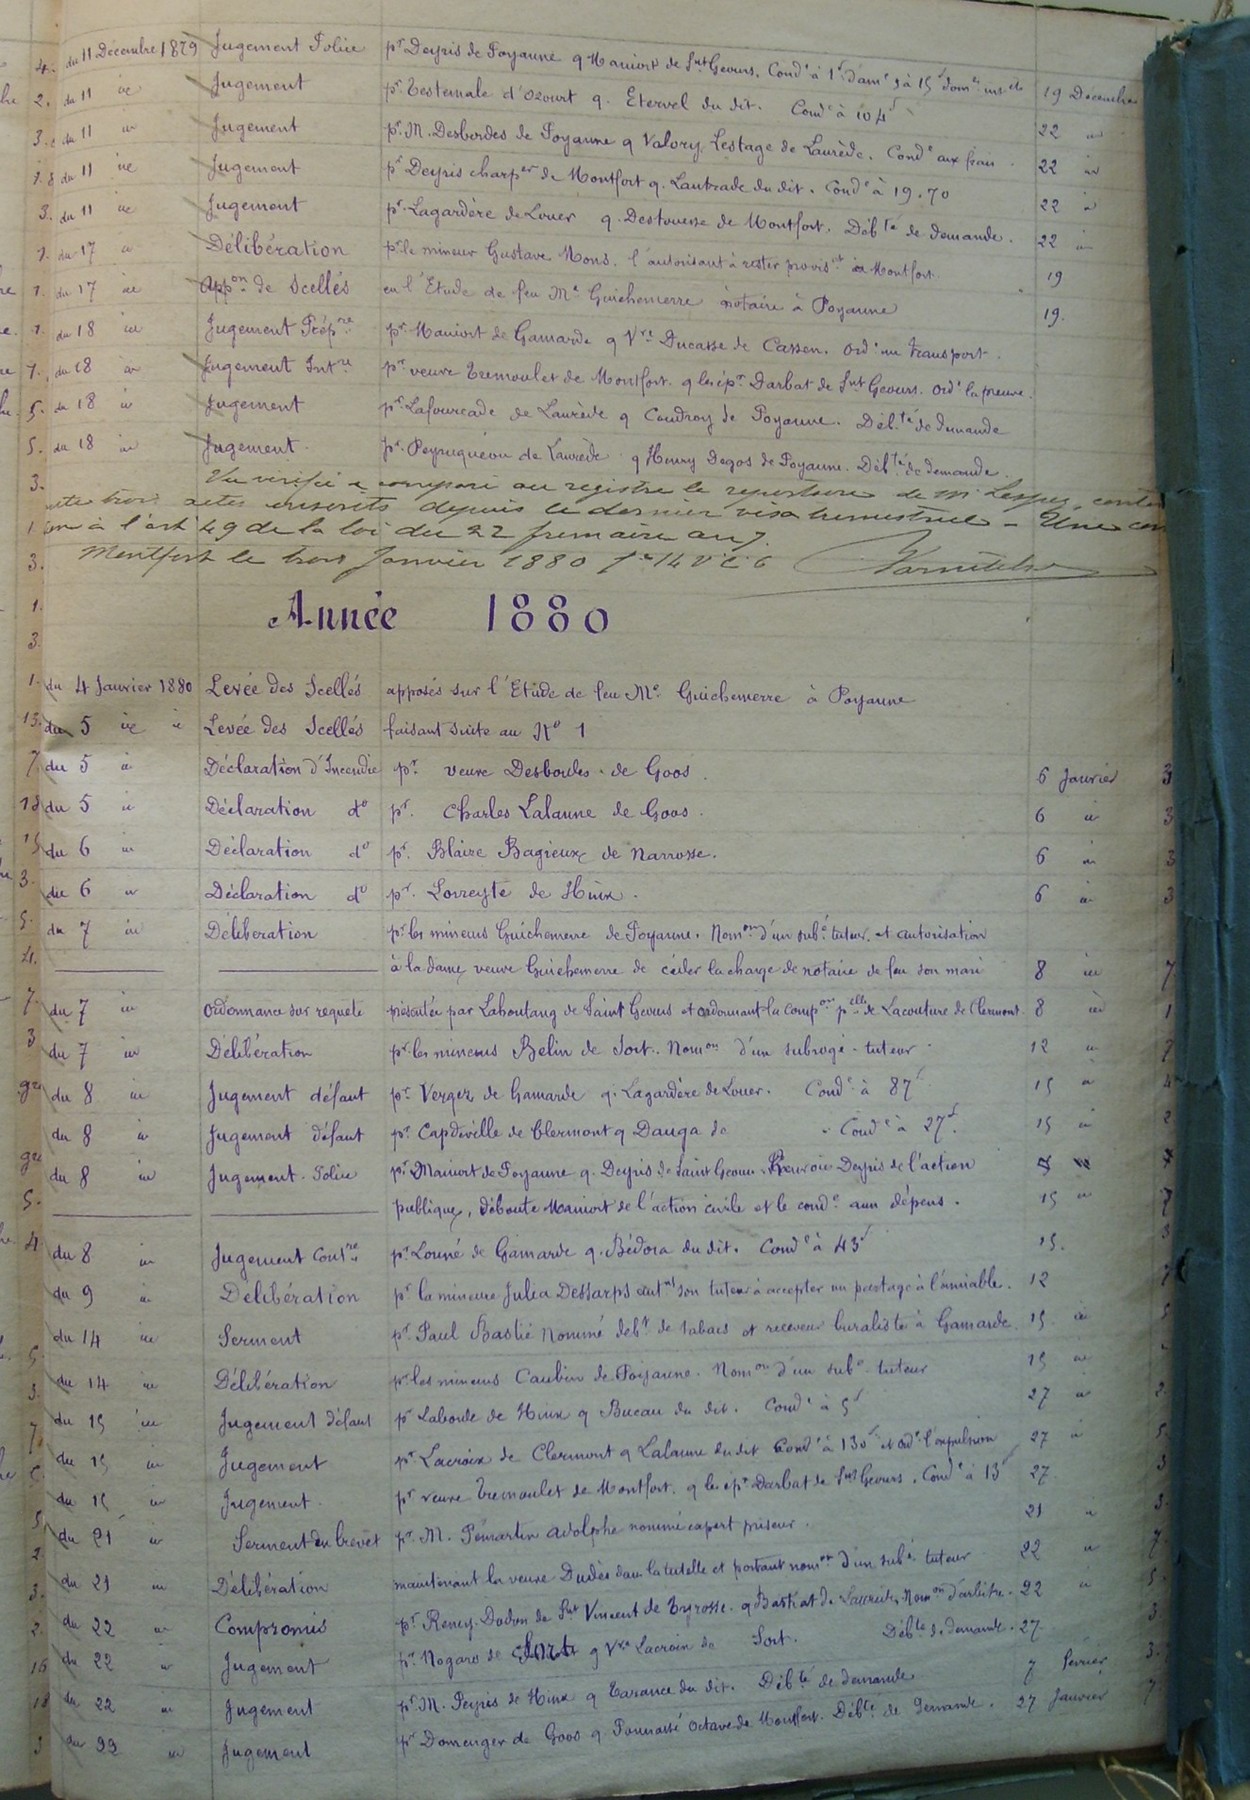 du 11 Décembre 1879 Jugement Police pr Deyris de Poyanne q Maniort de Snt Geours. Condé à 1f d'amde & à 15f dom. int. 19 Décembre
2. du 11 " Jugement pr Testemale d'Ozourt q. Etervel du dit. Condé à 104f 22 "
3. du 11 " Jugement pr M. Desbordes de Poyanne q Valory Lestage de Laurède. Condé aux frais. 22 "
du 11 " Jugement pr Deyris charper de Montfort q. Lautrade du dit. Condé à 19.70 22 "
3. du 11 " Jugement pr Lagardère de Louer q. Destouesse de Montfort. Débté de demande. 22 "
1. du 17 " Délibération pr le mineur Gustave Mons. l'autorisant à rester provist à Montfort. 19
1. du 17 " Appon de Scellés en l'Etude de feu Me Guichemerre notaire à Poyanne 19.
1. du 18 " Jugement Prépre pr Maniort de Gamarde q Vve Ducasse de Cassen. Ordt un transport.
7. du 18 " Jugement Intre pr veuve Tremoulet de Montfort. q les épx Darbat de Snt Geours. Ordt la preuve.
5. du 18 " Jugement pr Lafourcade de Laurède q Coudroy de Poyanne. Débté de demande
5. du 18 " Jugement. pr Peyruquéou de Laurède q Henry Degos de Poyanne. Débté de demande.
3. Vu vérifié & comparé au registre le repertoire de Mr Lespez,
trois actes inscrits depuis le dernier visa trimestriel –
1. à l'art 49 de la loi du 22 frimaire an 7.
3. Montfort le trois Janvier 1880
1. Année 1880
3.
1. du 4 Janvier 1880 Levée des Scellés apposés sur l'Etude de feu Me Guichemerre à Poyanne
13. du 5 " " Levée des Scellés faisant suite au No 1
7. du 5 " Déclaration d'Incendie pr veuve Desboules de Goos. 6 Janvier 3
du 5 " Déclaration do pr. Charles Lalanne de Goos. 6 " 3
du 6 " Déclaration do pr. Blaize Bagieux de Narrosse. 6 " 3
3. du 6 " Déclaration do pr. Lorreyte de Hinx. 6 " 3
5. du 7 " Déliberation pr les mineurs Guichemerre de Poyanne. Nomon d'un subé tuteur, et autorisation
4. à la dame veuve Guichemerre de céder la charge de notaire de feu son mari 8 " 7
7. du 7 " Ordonnance sur requête présentée par Laboutang de Saint Geours et ordonnant la compon pelle de Lacouture de Clermont. 8 " 1
3 du 7 " Délibération pr les mineurs Belin de Sort. Nomon d'un subrogé-tuteur. 12 " 7
du 8 " Jugement défaut pr Vergez de Gamarde q. Lagardère de Louer. Condé à 87f 15 " 4
du 8 " Jugement défaut pr Capdeville de Clermont q Dauga do . Condé à 27f. 15 " 2
du 8 " Jugement. Police pr Maniort de Poyanne q. Deyris de Saint Geours. Renvoie Deyris de l'action
5. publique, déboute Maniort de l'action civile et le condé aux dépens. 15 " 7
4. du 8 " Jugement Contre pr Louné de Gamarde q. Bédora du dit. Condé à 43f 15. 3
du 9 " Delibération pr la mineure Julia Dessarps autnt son tuteur à accepter un partage à l'amiable. 12 7
du 14 " Serment pr. Paul Bastié nommé débt de tabacs et receveur buraliste à Gamarde. 15 " 5
du 14 " Délibération pr les mineurs Caubin de Poyanne. Nomon d'un subé-tuteur 15 "
du 15 " Jugement défaut pr Laborde de Hinx q Bucau du dit. Condé à 5f 27 " 2
du 15 " Jugement pr Lacroix de Clermont q Lalanne du dit Condé à 130f et ordt l'expulsion 27 " 5
du 15 " Jugement. pr veuve Tremoulet de Montfort. q les épx Darbat de Snt Geours. Condé à 13f 27. 3
du 21 " Serment en brevet pr. M. Pémartin Adolphe nommé expert priseur. 21 " 3.
du 21 " Délibération maintenant la veuve Dudès dans la tutelle et portant nomon d'un subé tuteur 22 " 7.
du 22 " Compromis pr Rency-Dodon de Snt Vincent de Tyrosse. q Bastiat de Laurède. Nomon d'arbitre. 22 " 5.
du 22 " Jugement pr. Nogaro de Sort q Vve Lacroix de Sort. Débté de demande. 27. 3
du 22 " Jugement pr M. Peyris de Hinx q Tarance du dit. Débté de demande 7 février 3.
du 22 " Jugement pr Domenger de Goos q. Pounaité Octave de Montfort. Débté de Demande. 27 Janvier 7